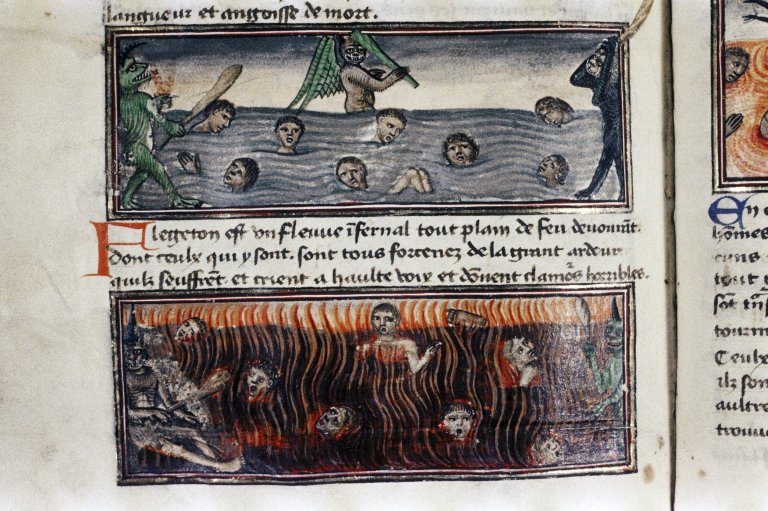 langueur et angoisse de mort.
Flegeton est vn fleuue ifernal tout plain de feu deuorant.
dont ceulx qui y sont. sont tous forcenez de la grant ardeur
quilz seuffret. et crient a haulte voix et donent clamors horribles.
En
homes
tout
tourm
Ceulx
ilz son
aultre
trouue